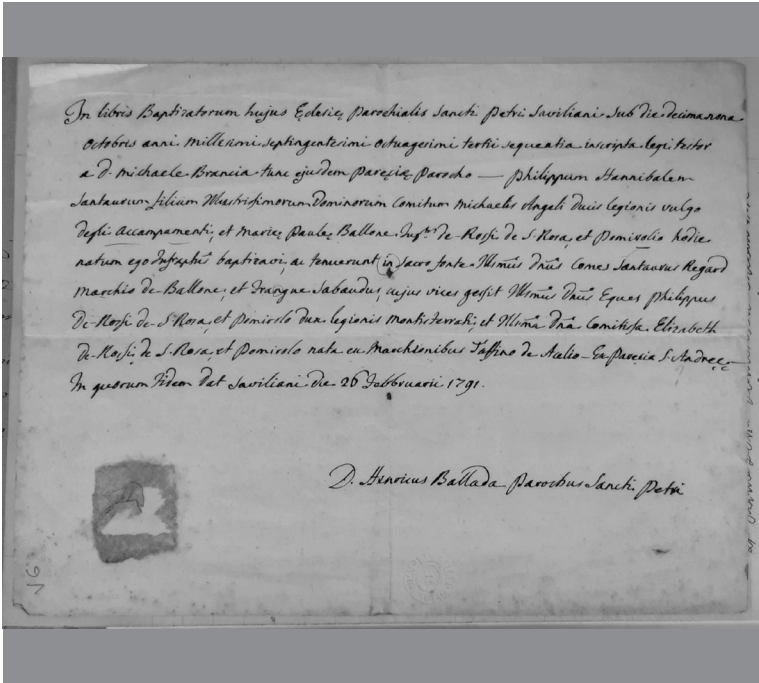 In libris Baptizatorum hujus Ęclesię Parochialis Sancti Petri Saviliani Sub die decimanona
octobris anni millesimi septingentesimi octuagesimi tertii sequentia inscripta legi testor
a d. michaele Brancia tunc ejusdem Paręcię Parocho — Philippum Hannibalem
Santaurum filium Illustrissimorum Dominorum Comitum michaelis Angeli ducis legionis vulgo
degli Accampamenti, et marię Paulę Ballone de-Rossi de S-Rosa, et Pomirolio hodie
natum ego baptizavi, ac tenuerunt in Sacro fonte Illmus dnus Comes Santaurus Regard
marchio de-Ballone, et Sabaudus, cujus vices gessit Illmus dnus Eques Philippus
de-Rossi de-S-Rosa, et Pomirolo dux legionis montisferrati, et Illma dna Comitissa Elizabeth
de-Rossi, de S-Rosa, et Pomirolo nata ex Marchionibus Taffino de Acelio - Ex Paręcia S. Andreę
In quorum Fidem dat Saviliani die 26 Febbruarii 1791.
D. Henricus Ballada Parochus Sancti Petri